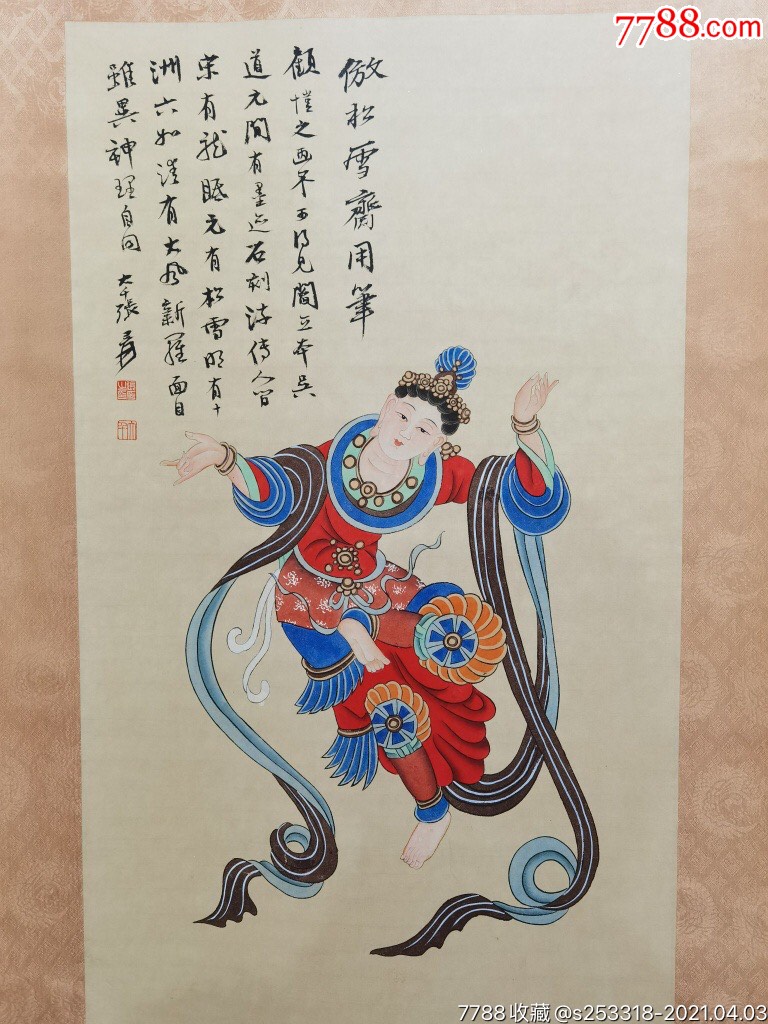 7788.com
倣松雪齋用筆
顧愷之画不可得見閻立本吳
道元間有墨迹石刻流傳人間
宋有龍眠元有松雪明有十
洲六如清有大風新羅面目
雖異神理自同 大千張爰
7788收藏@s253318-2021.04.03